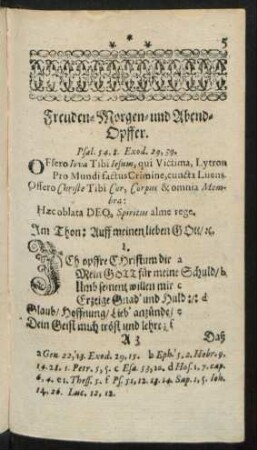 * * *
5
Freuden-Morgen-und Abend-
Opffer.
Psal. 54. 8. Exod. 29, 39.
OFfero Iova Tibi Iesum, qui Victima, Lytron
Pro Mundi factus Crimine, cuncta Luens.
Offero Christe Tibi Cor, Corpus & omnia Mem-
bra:
Hæc oblata DEO, Spiritus alme rege.
Am Thon: Auff meinen lieben GOtt/ ꝛc.
1.
JCh opffre CHristum dir a
Mein GOTT für meine Schuld/ b
Umb seinent willen mir c
Erzeige Gnad' und Huld :/: d
Glaub/ Hoffnung/ Lieb' anzünde/ e
Dein Geist mich tröst und lehre; f
A 3 Daß
a Gen. 22, 13. Exod. 29. 15. b Eph. 5. 2. Hebr. 9.
14. 28. 1. Petr. 5, 5. c Esa. 53, 10. d Hos. 1. 7. cap.
6, 4. e 1. Thess. 5. f Ps. 51, 12. 13. 14. Sap. 1, 5. Joh.
14. 26. Luc. 12, 12.